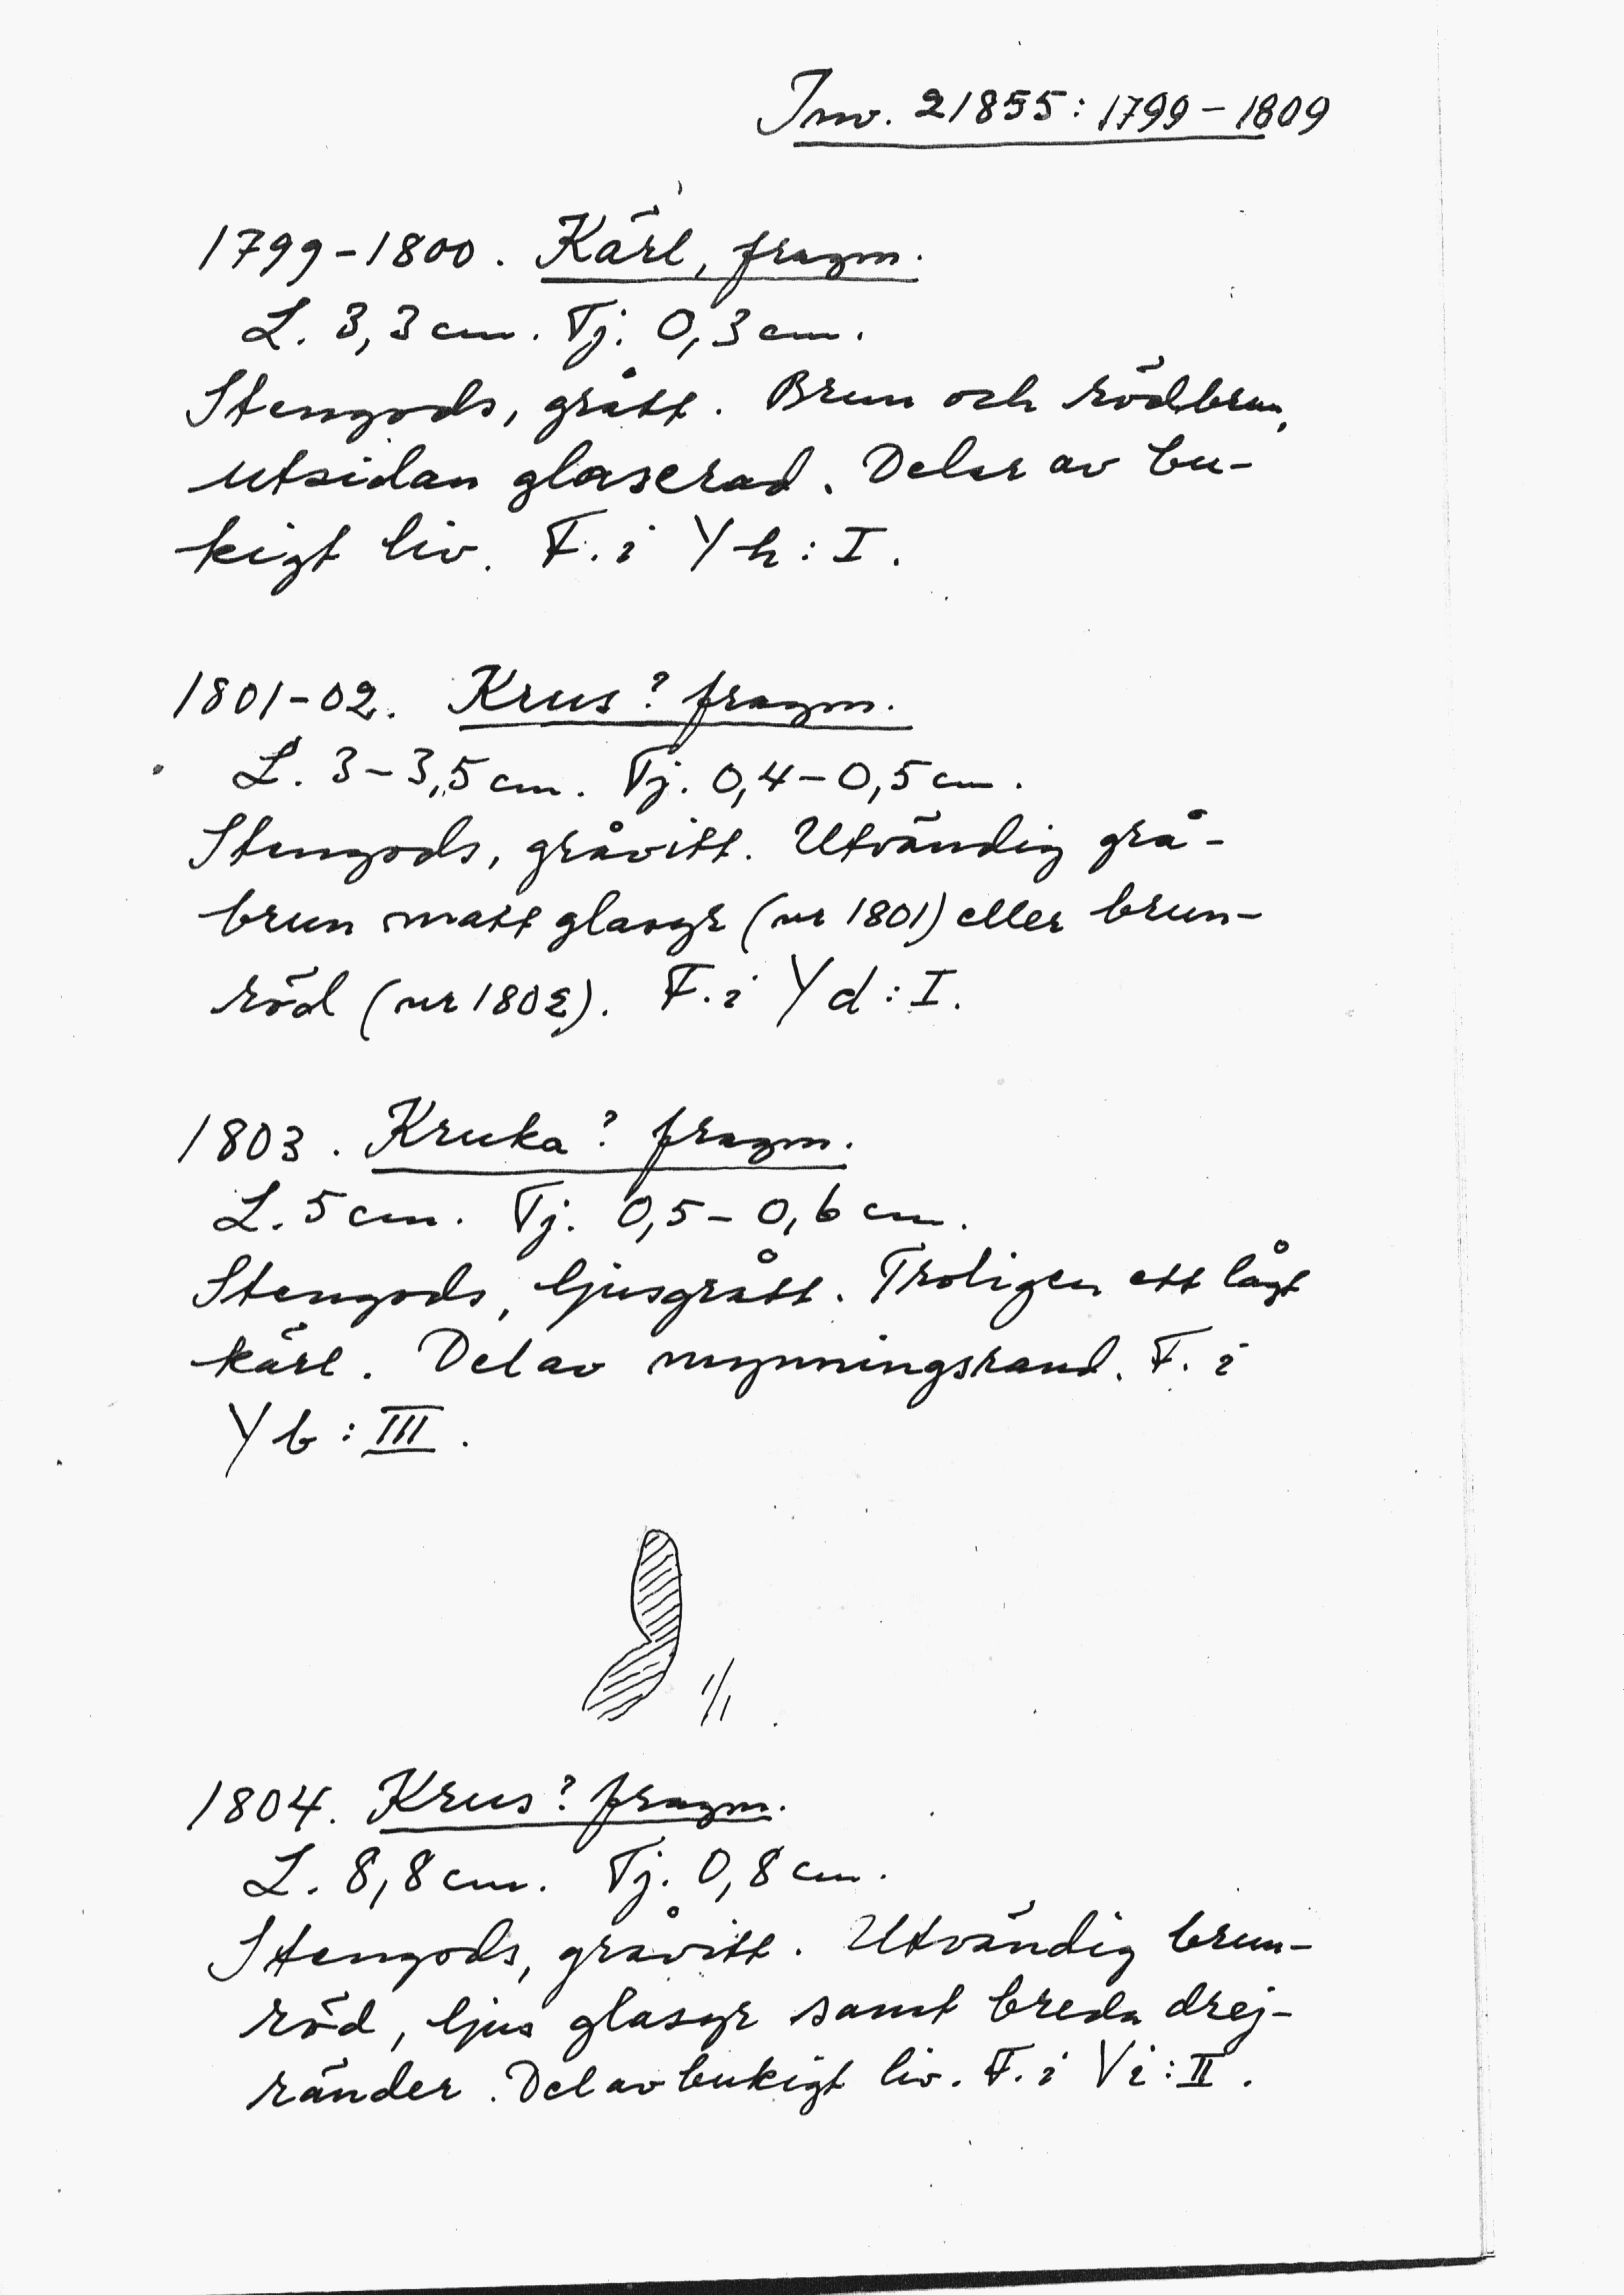 Inv. 21855: 1799-1809
1799-1800. Kärl, fragm.
L. 3,3 cm. Tj. 0,3 cm.
Stengods, grått. Brun och rödbrun,
utsidan glaserad. Delar av bu-
kigt liv. F. i Yh: I.
1801-02. Krus? fragm.
L. 3-3,5 cm. Tj. 0,4-0,5 cm.
Stengods, gråvitt. Utvändig grå-
brun matt glasyr (nr 1801) eller brun-
röd (nr 1802). F. i Yd: I.
1803. Kruka? fragm.
L. 5 cm. Tj. 0,5-0,6 cm.
Stengods, ljusgrått. Troligen ett lågt
kärl. Del av mynningsrand. F. i
Yb: III.
1/1
1804. Krus? fragm.
L. 8,8 cm. Tj. 0,8 cm.
Stengods, gråvitt. Utvändig brun-
röd, ljus glasyr samt breda drej-
ränder. Del av bukigt liv. F. i Vi: II.